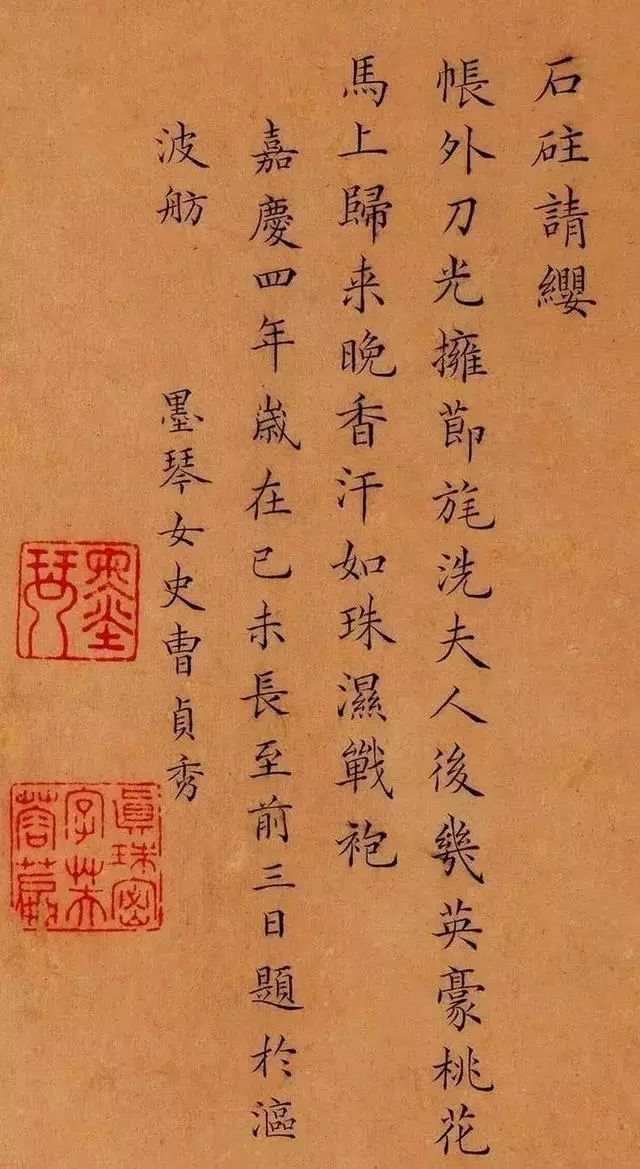 石砫請纓
帳外刀光擁節旄洗夫人後幾英豪桃花
馬上歸来晚香汗如珠濕戰袍
嘉慶四年歲在己未長至前三日題於漚
波舫 墨琴女史曹貞秀
墨琴
眞珠密字芙蓉